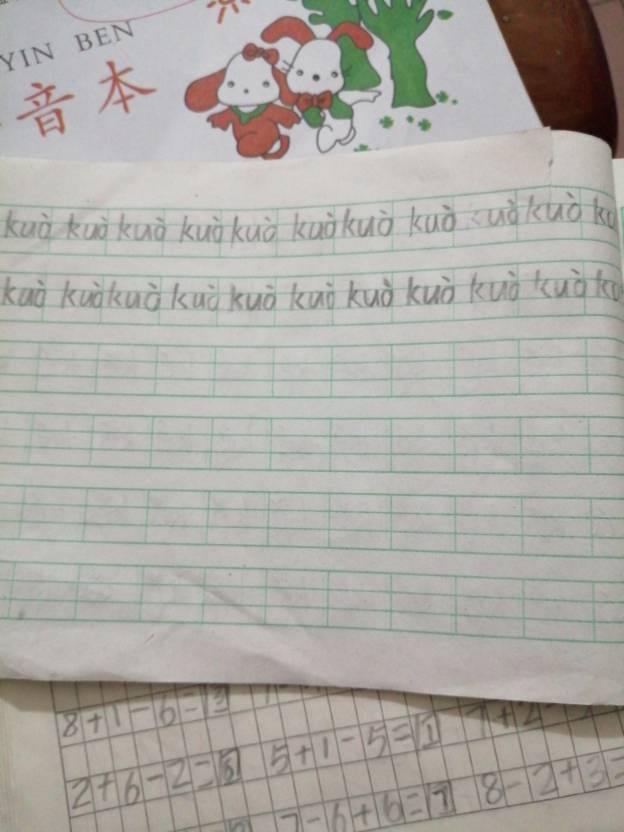 YIN BEN
音本
kuò kuò kuò kuò kuò kuò kuò kuò kuò kuò
kuò kuò kuò kuò kuò kuò kuò kuò kuò kuò
8+1-6=3
2+6-2=6 5+1-5=1
7-6+6=7 8-2+3=